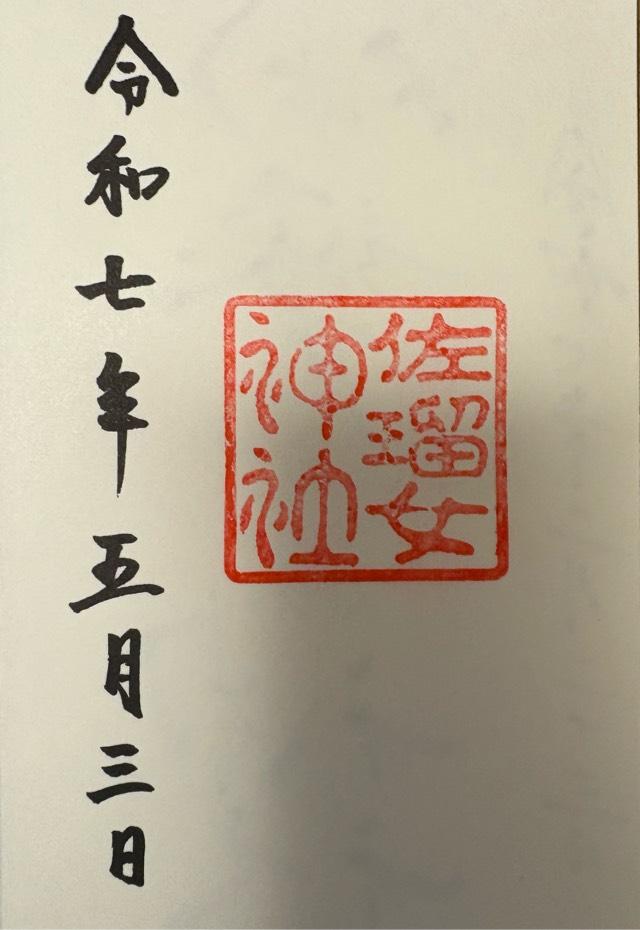 佐瑠女
神社
令和七年五月三日